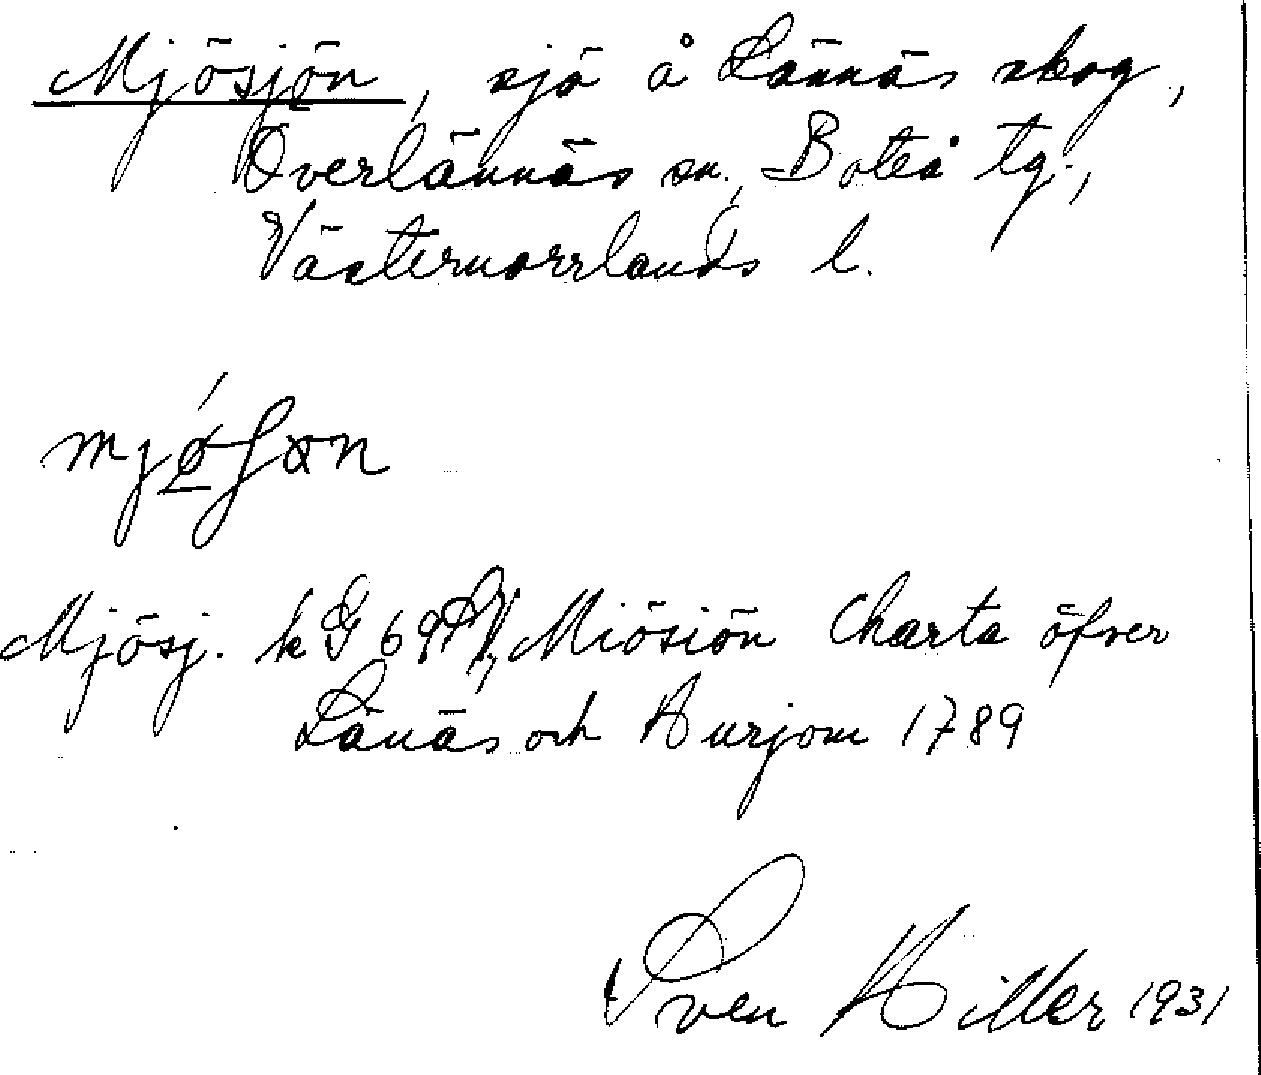 Mjösjön, sjö å Lännäs skog,
Överlännäs sn., Boteå tg.,
Västernorrlands l.
mjǿʃɷn
Mjösj. kG 69 Miösiön Charta öfver
Länäs och Kurjom 1789
Sven Hiller 1931